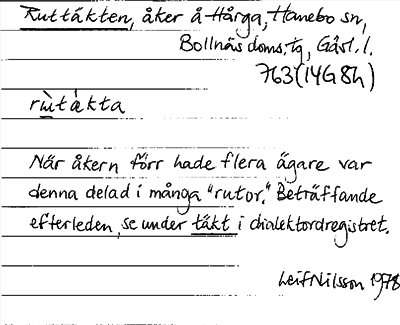 Ruttäkten, åker å Hårga, Hanebo sn,
Bollnäs doms.tg, Gävl. l.
763 (14G 8h)
rùtàkta
När åkern förr hade flera ägare var
denna delad i många "rutor." Beträffande
efterleden, se under täkt i dialektordregistret.
Leif Nilsson 1978